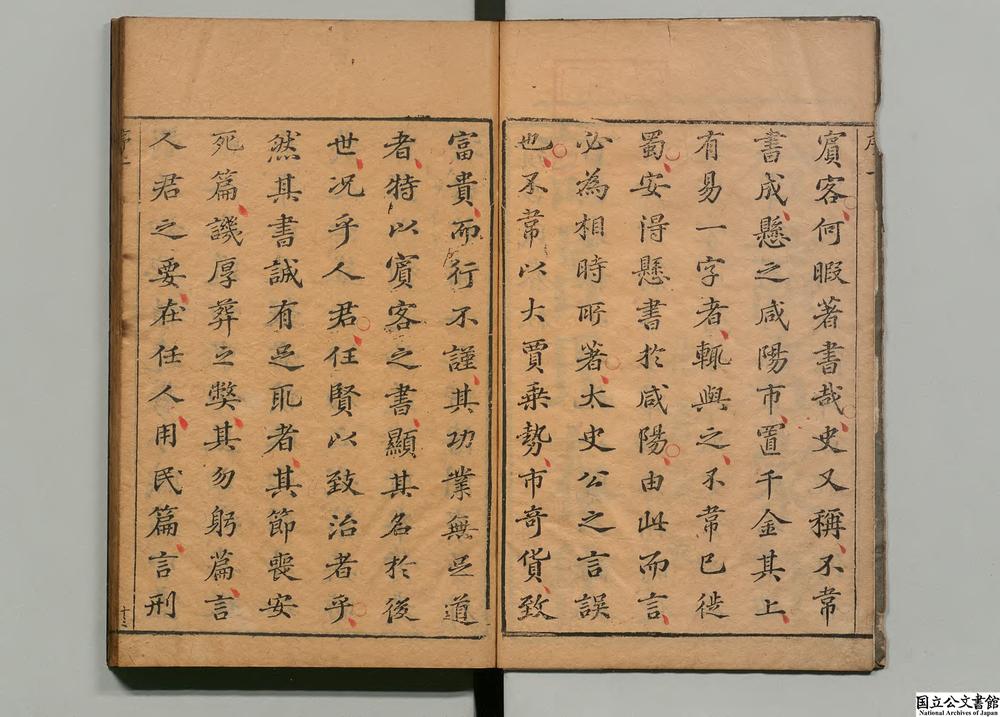 賓客何暇著書哉史又稱不常
書成懸之咸陽市置千金其上
有易一字者輒與之不常已徙
蜀安得懸書於咸陽由此而言
必為相時所著太史公之言誤
也不常以大賈乗勢市奇貨致
富貴而行不謹其功業無足道
者特以賓客之書顯其名於後
世况乎人君任賢以致治者乎
然其書誠有足取者其節喪安
死篇譏厚葬之弊其勿躬篇言
人君之要在任人用民篇言刑
国立公文書館
National Archives of Japan